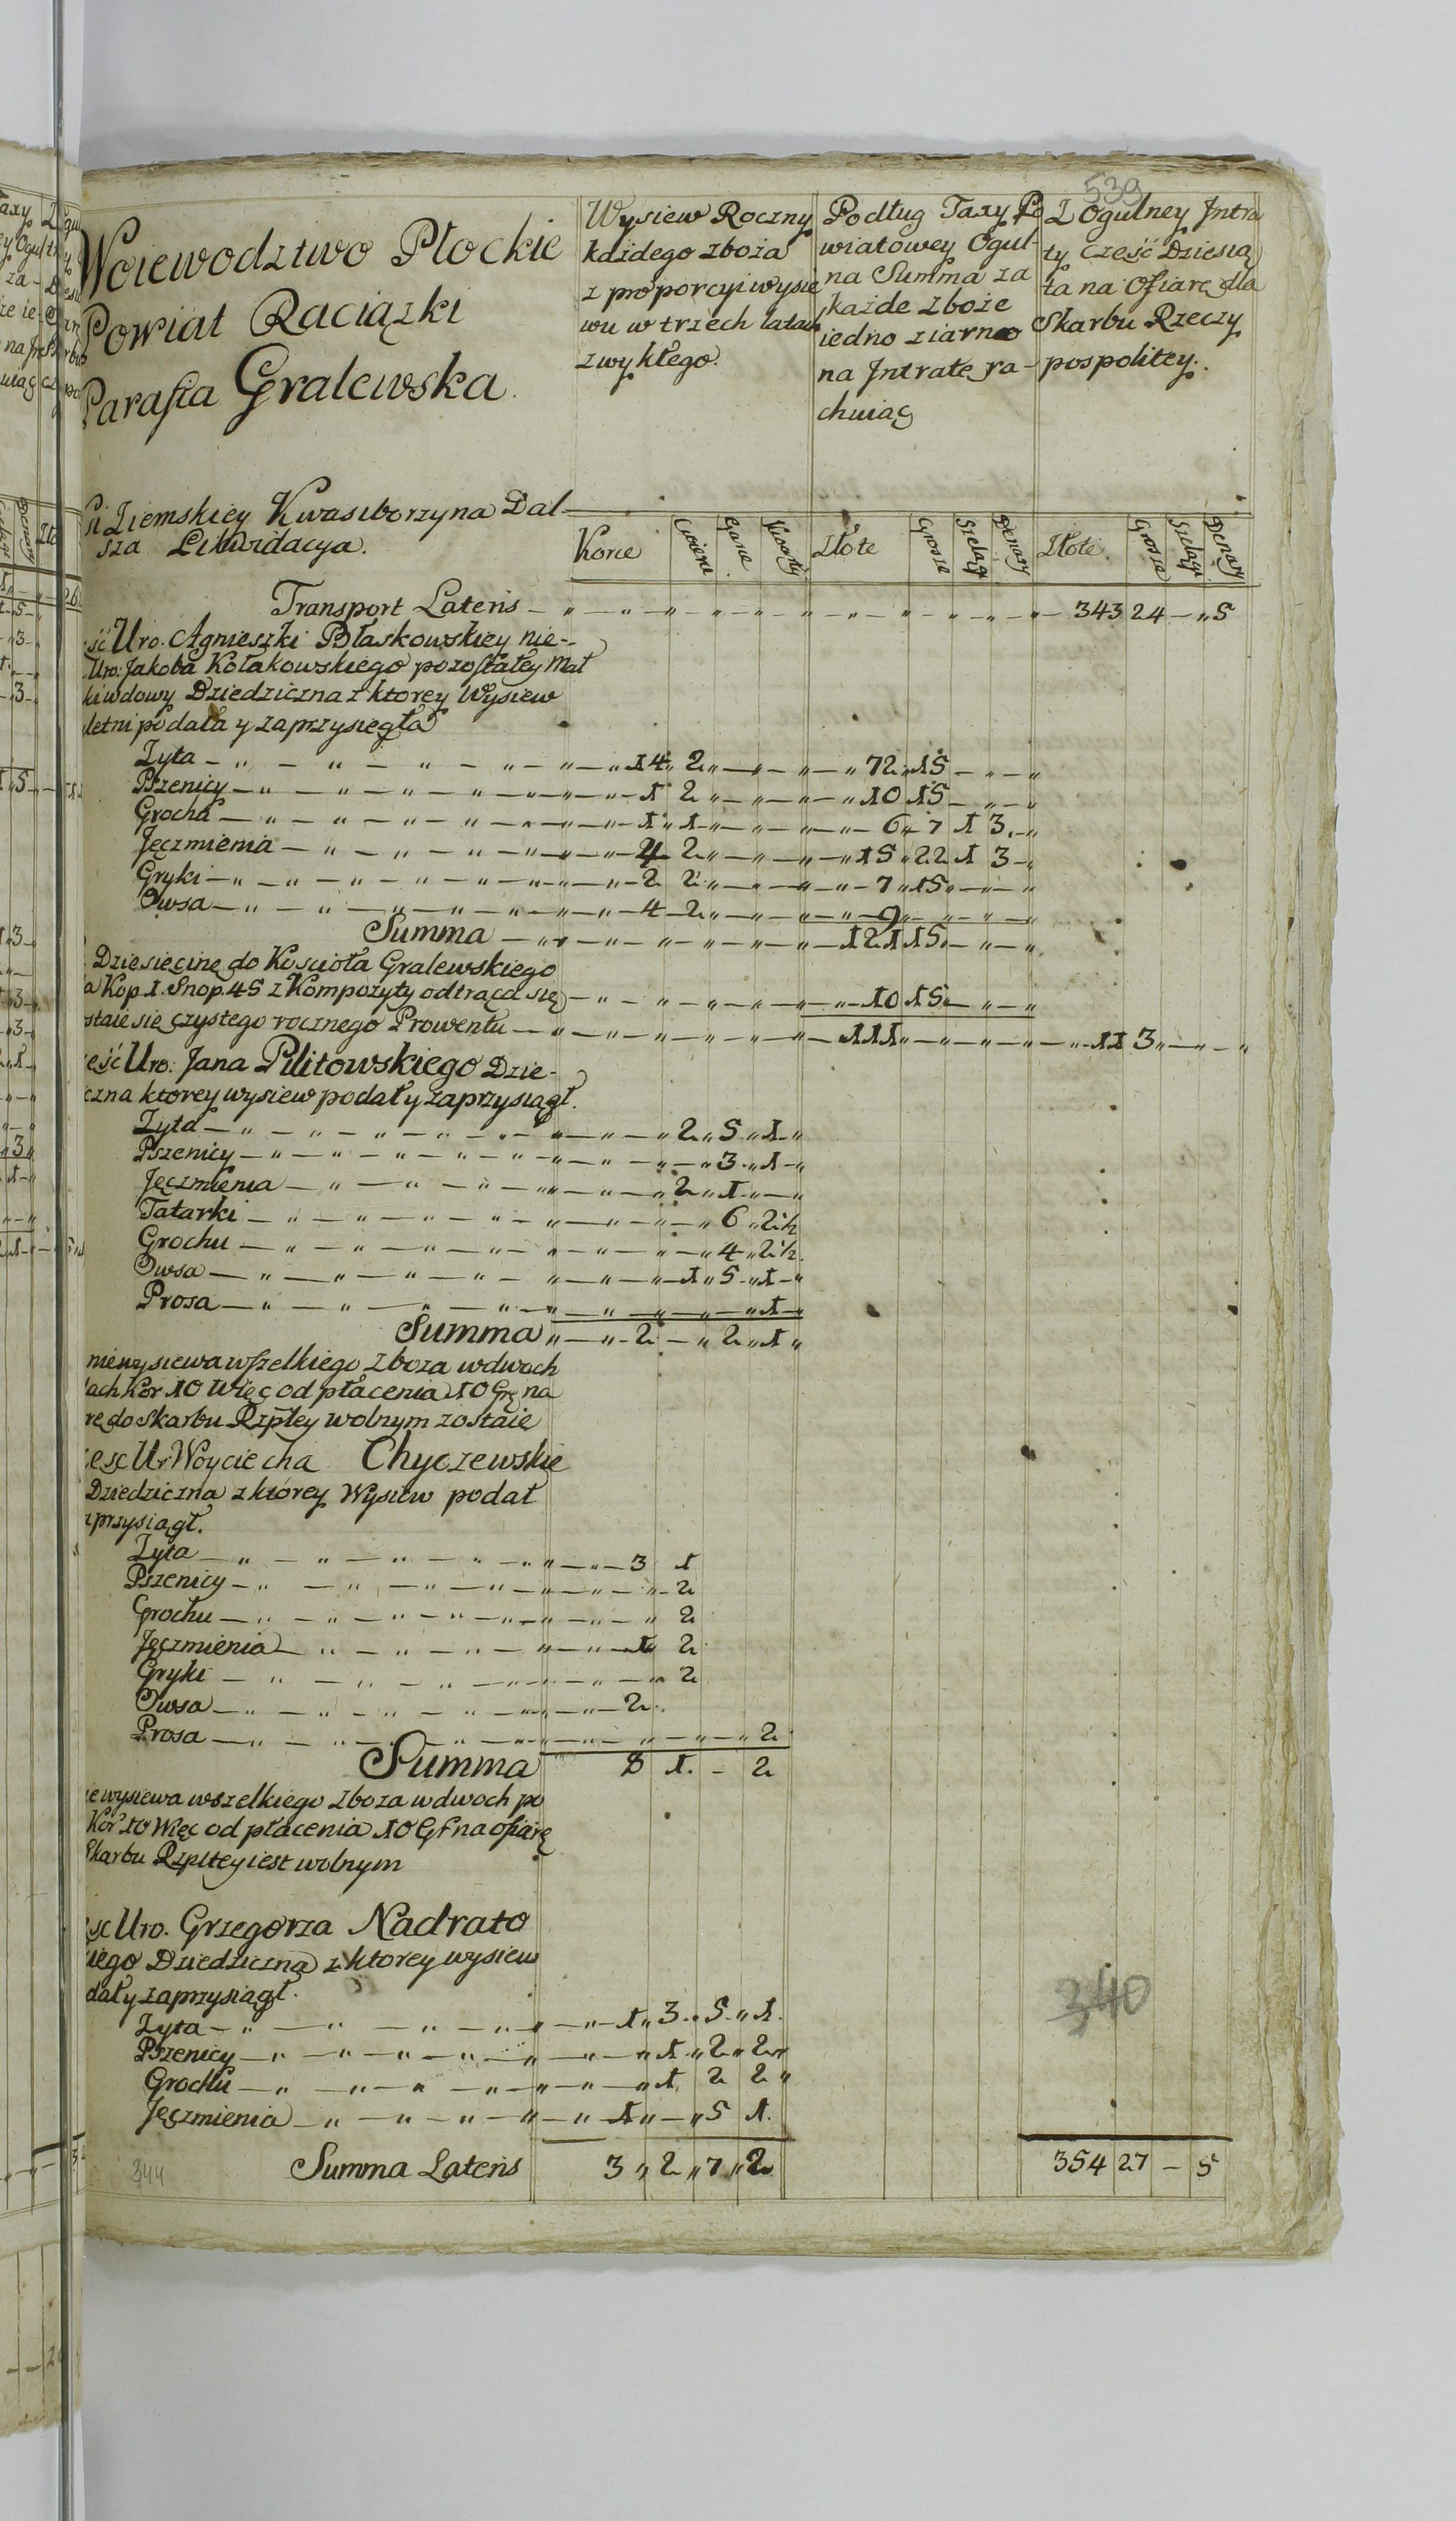 539
Woiewodztwo Płockie
Powiat Raciązki
Parafia Gralewska.
Wysiew Roczny
każdego zboża
z proporcyi wysie
wu w trzech latach
zwykłego.
Podług Taxy Po
wiatowey Ogul-
na Summa za
każde zboże
iedno ziarno
na Jntratę ra-
chuiąc
Z Ogulney Jntra
ty cześć Dziesią
ta na Ofiarę dla
Skarbu Rzeczy
pospolitey.
si Ziemskiey Kwasiborzyna Dal-
sza Likwidacya.
Korce Cwierci Garce Kwarty Złote Grosze Szelągi Denary Złote. Grosze Szelągi Denary
Transport Lateris — 343 24 — „ 5
ść Uro. Agnieszki Błaskowskiey nie-
Uro: Jakoba Kołakowskiego pozostałey Mał
ki wdowy Dziedziczna z ktorey Wysiew
letni podała y zaprzysięgła
Zyta — 14 „ 2 „ — „ 72 „ 15 — „ — „
Pszenicy — 1 2 „ — „ 10 15 — „ — „
Grochu — 1 „ 1 „ — „ 6 „ 7 1 3. — „
Jęczmienia — 4 2 „ — „ 15 „ 22 1 3 — „
Gryki — 2 2 „ — „ 7 „ 15 „ — „ — „
Owsa — 4 — 2 „ — „ 9 „ — „ — „
Summa — „ 121 15 — „ — „
Dziesięcinę do Kościoła Gralewskiego
a Kop. 1. Snop. 45 z Kompozyty odtrąca się — „ 10 15 — „ — „
staie się czystego rocznego Prowentu — „ 111 — „ — „ 11 3 „ — „ — „
eść Uro: Jana Pilitowskiego Dzie-
czna ktorey wysiew podał y zaprzysiągł.
Zyta — „ 2 „ 5 „ 1 — „
Pszenicy — „ — „ 3 „ 1 — „
Jęczmienia — „ 2 „ 1 „ — „
Tatarki — „ — „ 6 „ 2 ½
Grochu — „ — „ 4 „ 2 ½
Owsa — „ — 1 „ 5 „ 1 — „
Prosa — „ — „ — „ 1 — „
Summa „ — „ 2 — „ 2 „ 1 „
nie wysiewa wszelkiego zboza w dwoch
lach Kor 10 Więc od płacenia 10 Gr na
rę do Skarbu Rzpltey wolnym zostaie
esc Ur Woyciecha Chyczewskie
Dziedziczna z którey Wysiew podał
aprzysiągł.
Zyta — „ — 3 1
Pszenicy — „ — „ 2
Grochu — „ — „ 2
Jęczmienia — „ — 1 2
Gryki — „ — „ 2
Owsa — „ — 2.
Prosa — „ — „ — „ — „ 2
Summa 8 1. — 2
ie wysiewa wszelkiego zboza w dwoch po
Kor 10 Więc od płacenia 10 Gr na ofiarę
Skarbu Rzpltey iest wolnym
sc Uro. Grzegorza Nadrato
iego Dziedziczna z ktorey wysiew
dał y zaprzysiągł.
Zyta — „ — 1 „ 3 „ 5 „ 1.
Pszenicy — „ — „ 1 „ 2 „ 2 „
Grochu — „ — „ 1 2 2 „
Jęczmienia — „ — 1 „ — „ 5 1.
340
344 Summa Lateris 3 „ 2 „ 7 „ 2 354 27 — 5